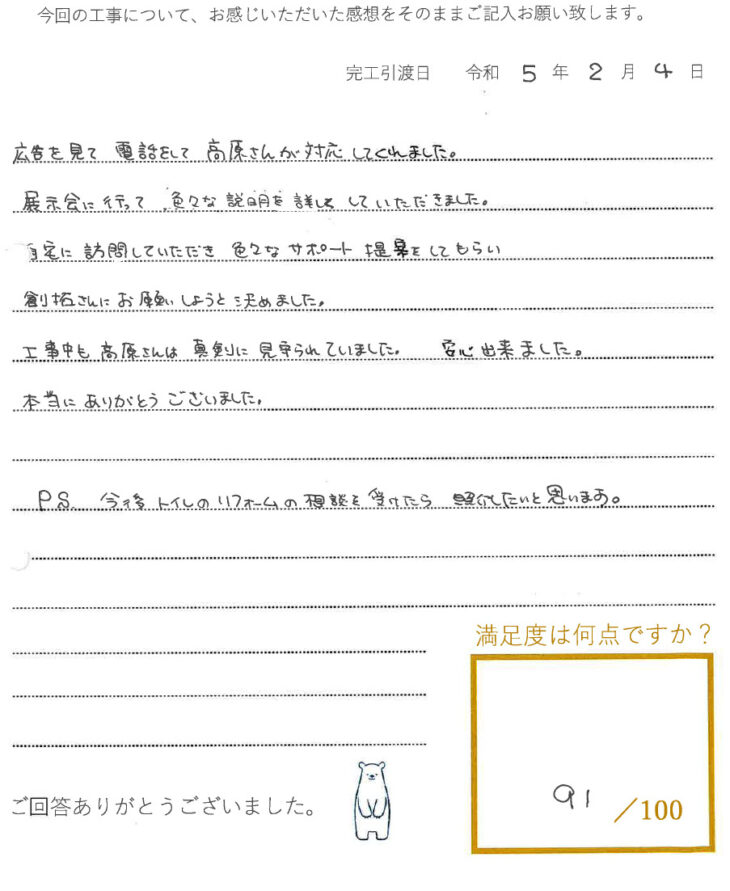 今回の工事について、お感じいただいた感想をそのままご記入お願い致します。
完工引渡日 令和 5 年 2 月 4 日
広告を見て 電話をして 高原さんが対応してくれました。
展示会に行って 色々な説明を詳しくしていただきました。
自宅に訪問していただき 色々なサポート 提案をしてもらい
創拓さんにお願いしようと決めました。
工事中も高原さんは真剣に見守られていました。 安心出来ました。
本当にありがとうございました。
P.S. 今後トイレのリフォームの相談を受けたら 紹介したいと思います。
満足度は何点ですか？
91 ／100
ご回答ありがとうございました。